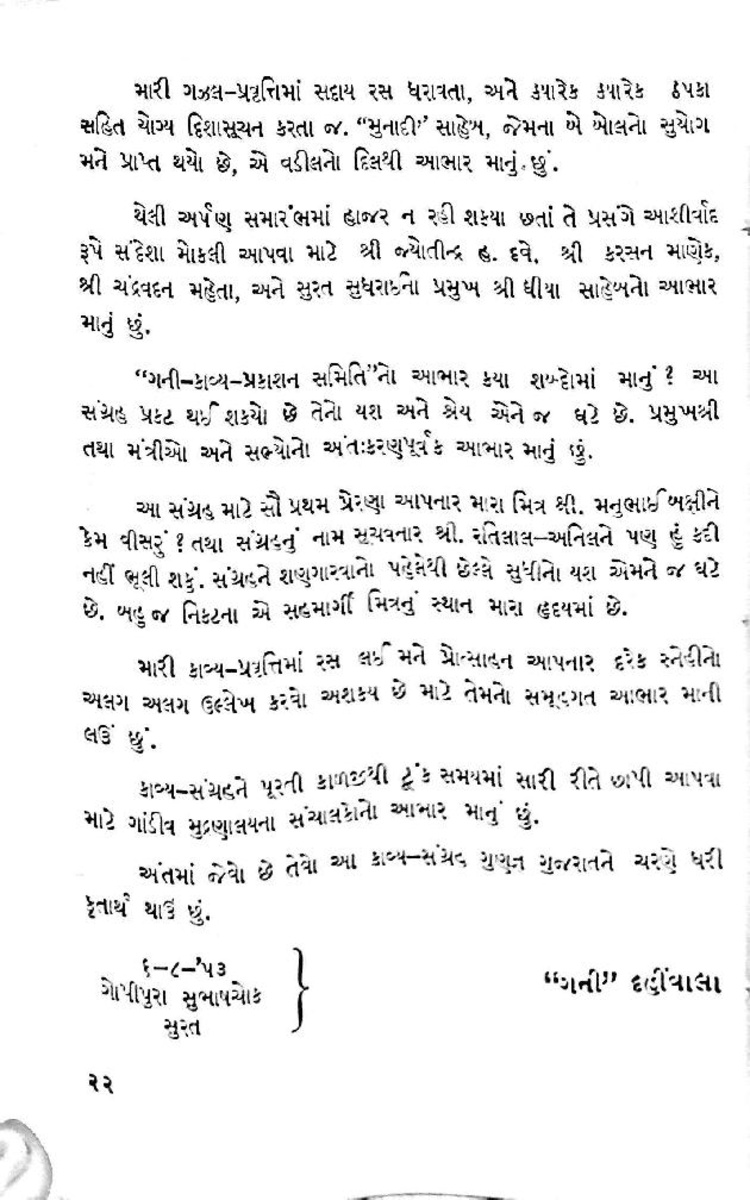 મારી ગઝલ-પ્રવૃત્તિમાં સદાય રસ ધરાવતા, અને કયારેક કયારેક ઠપકા
સહિત યોગ્ય દિશાસૂચન કરતા જ. “મુનાદી” સાહેબ, જેમના બે બોલનો સુયોગ
મને પ્રાપ્ત થયો છે, એ વડીલનો દિલથી આભાર માનું છું.
થેલી અર્પણ સમારંભમાં હાજર ન રહી શકયા છતાં તે પ્રસંગે આશીર્વાદ
રૂપે સંદેશા મોકલી આપવા માટે શ્રી જ્યોતીન્દ્ર હ. દવે, શ્રી કરસન માણેક,
શ્રી ચંદ્રવદન મહેતા, અને સુરત સુધરાઈના પ્રમુખ શ્રી ઘીયા સાહેબનો આભાર
માનું છું.
“ગની-કાવ્ય-પ્રકાશન સમિતિ”નો આભાર કયા શબ્દોમાં માનું ? આ
સંગ્રહ પ્રકટ થઈ શકયો છે તેનો યશ અને શ્રેય એને જ ઘટે છે. પ્રમુખશ્રી
તથા મંત્રીઓ અને સભ્યોનો અંતઃકરણપૂર્વક આભાર માનું છું.
આ સંગ્રહ માટે સૌ પ્રથમ પ્રેરણા આપનાર મારા મિત્ર શ્રી. મનુભાઈ બક્ષીને
કેમ વીસરું ? તથા સંગ્રહનું નામ સૂચવનાર શ્રી. રતિલાલ-અનિલને પણ હું કદી
નહીં ભૂલી શકું. સંગ્રહને શણગારવાનો પહેલેથી છેલ્લે સુધીનો યશ એમને જ ઘટે
છે. બહુ જ નિકટના એ સહમાર્ગી મિત્રનું સ્થાન મારા હૃદયમાં છે.
મારી કાવ્ય-પ્રવૃત્તિમાં રસ લઈ મને પ્રોત્સાહન આપનાર દરેક સ્નેહીનો
અલગ અલગ ઉલ્લેખ કરવો અશકય છે માટે તેમનો સમૂહગત આભાર માની
લઉં છું.
કાવ્ય-સંગ્રહને પૂરતી કાળજીથી ટૂંક સમયમાં સારી રીતે છાપી આપવા
માટે ગાંડીવ મુદ્રણાલયના સંચાલકોનો આભાર માનું છું.
અંતમાં જેવો છે તેવો આ કાવ્ય-સંગ્રહ ગુણજ્ઞ ગુજરાતને ચરણે ધરી
કૃતાર્થ થાઉં છું.
૬-૮-'૫૩
ગોપીપુરા સુભાષચોક
સુરત
“ગની” દહીંવાલા
૨૨